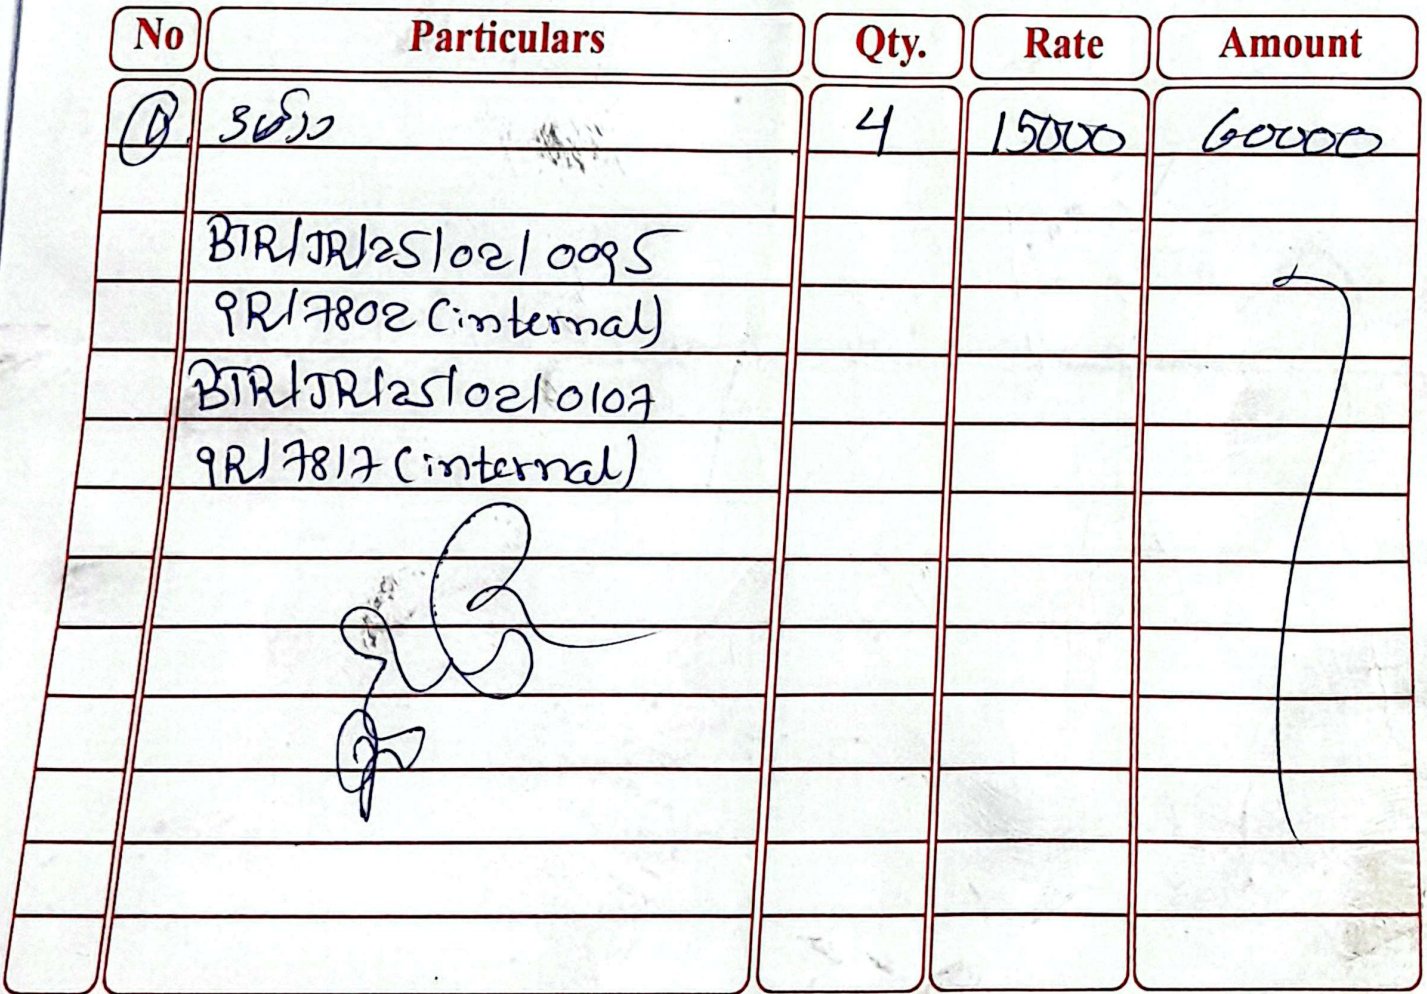 No Particulars Qty. Rate Amount
4 15000 60000
BTR/JR/25/02/0095
9R/7802 (internal)
BTR/JR/25/02/0107
9R/7817 (internal)